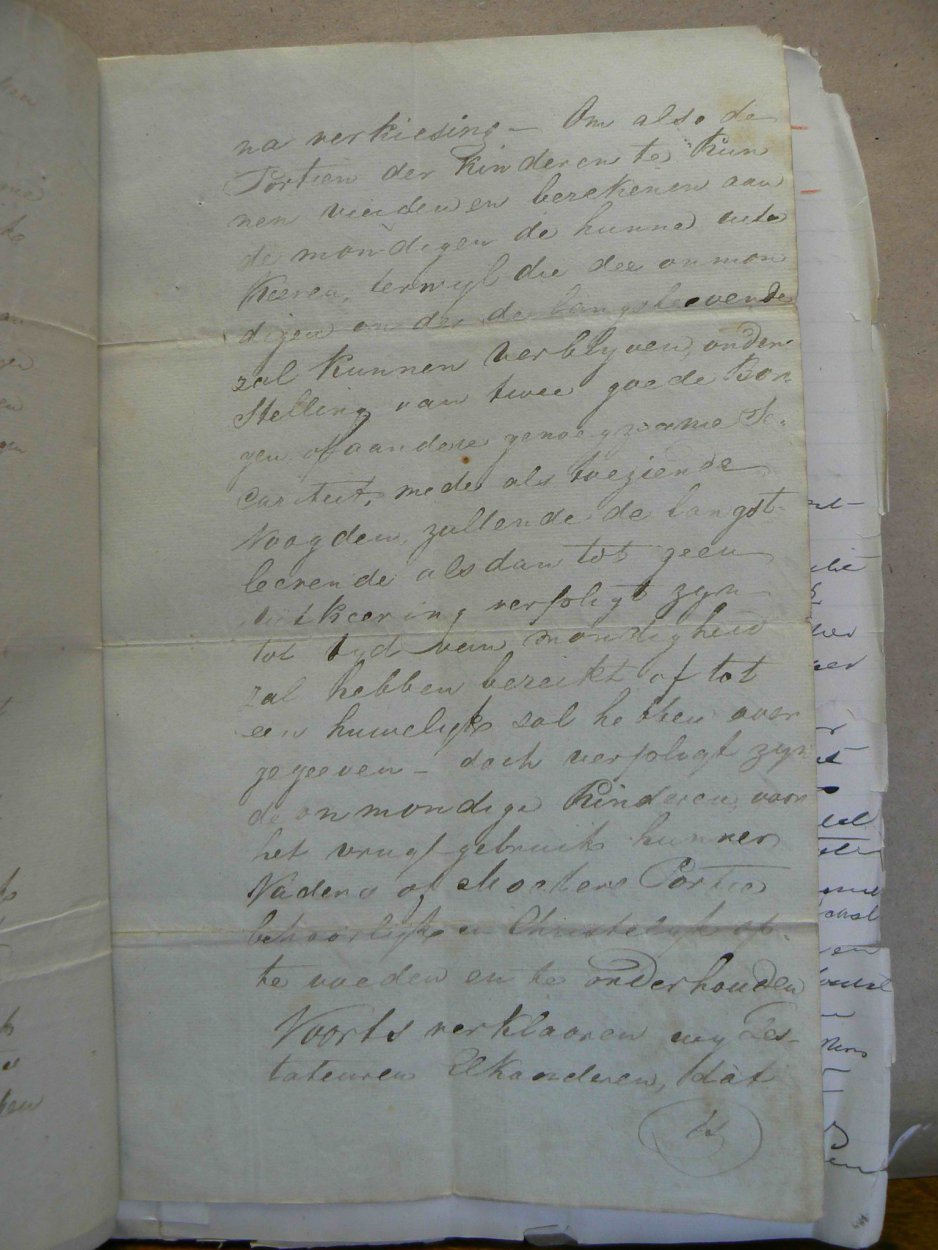 na verkiesing – Om also de
Portien der Kinderen te Kun
nen vinden en berekenen aan
de mondigen de hunne uit te
Keeren, terwyl die der onmon
digen onder de langstleevende
zal Kunnen verblyven, onder
Stelling van twee goede Bor
gen of aandere genoegzaame Se-
curiteit, mede als toeziende
Voogden, zullende de langst-
leevende alsdan tot geen
uitkeering verpligt zyn
tot tyd van mondigheid
zal hebben bereikt of tot
een huwelijk zal hebben over
gegeeven – doch verpligt zyn
de onmondige Kinderen, voor
het vrugtgebruik hunner
Vaders of Moeders Portie
behoorlijk en Christelyk op-
te voeden en te onderhouden
Voorts verklaaren wy Tes-
tateuren Elkanderen, dat